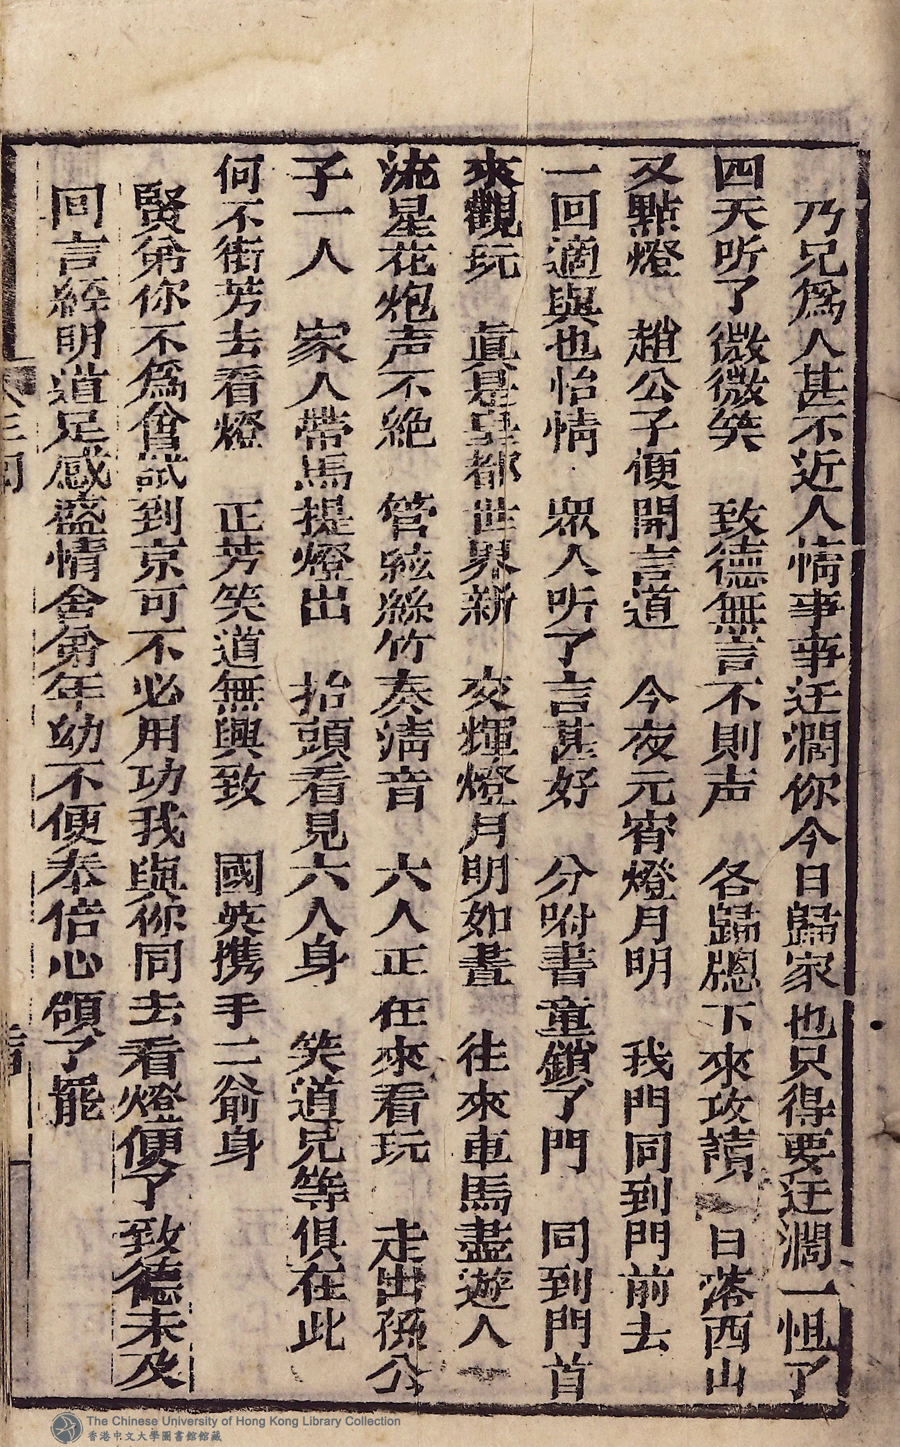 乃兄爲人甚不近人情事事迂濶你今日歸家也只得要迂濶一怛了
四天听了微微笑　致德無言不則声　各歸牕下來攻讀　日落西山
又點燈　趙公子便開言道　今夜元宵燈月明　我門同到門前去
一回適與也怡情　眾人听了言甚好　分咐書童鎖了門　同到門首
來觀玩　眞是皇都世界新　交輝燈月明如晝　往來車馬盡遊人
流星花炮声不絶　管絃絲竹奏淸音　六人正在來看玩　走出孫公
子一人　家人帶馬提燈出　抬頭看見六人身　笑道兄等俱在此
何不街芳去看燈　正芳笑道無興致　國英携手二爺身
賢弟你不爲會試到京可不必用功我與你同去看燈便了致德未及
回言經明道足感盛情舍弟年幼不便奉倍心領了罷
卷三囘
The Chinese University of Hong Kong Library Collection
香港中文大學圖書館館藏